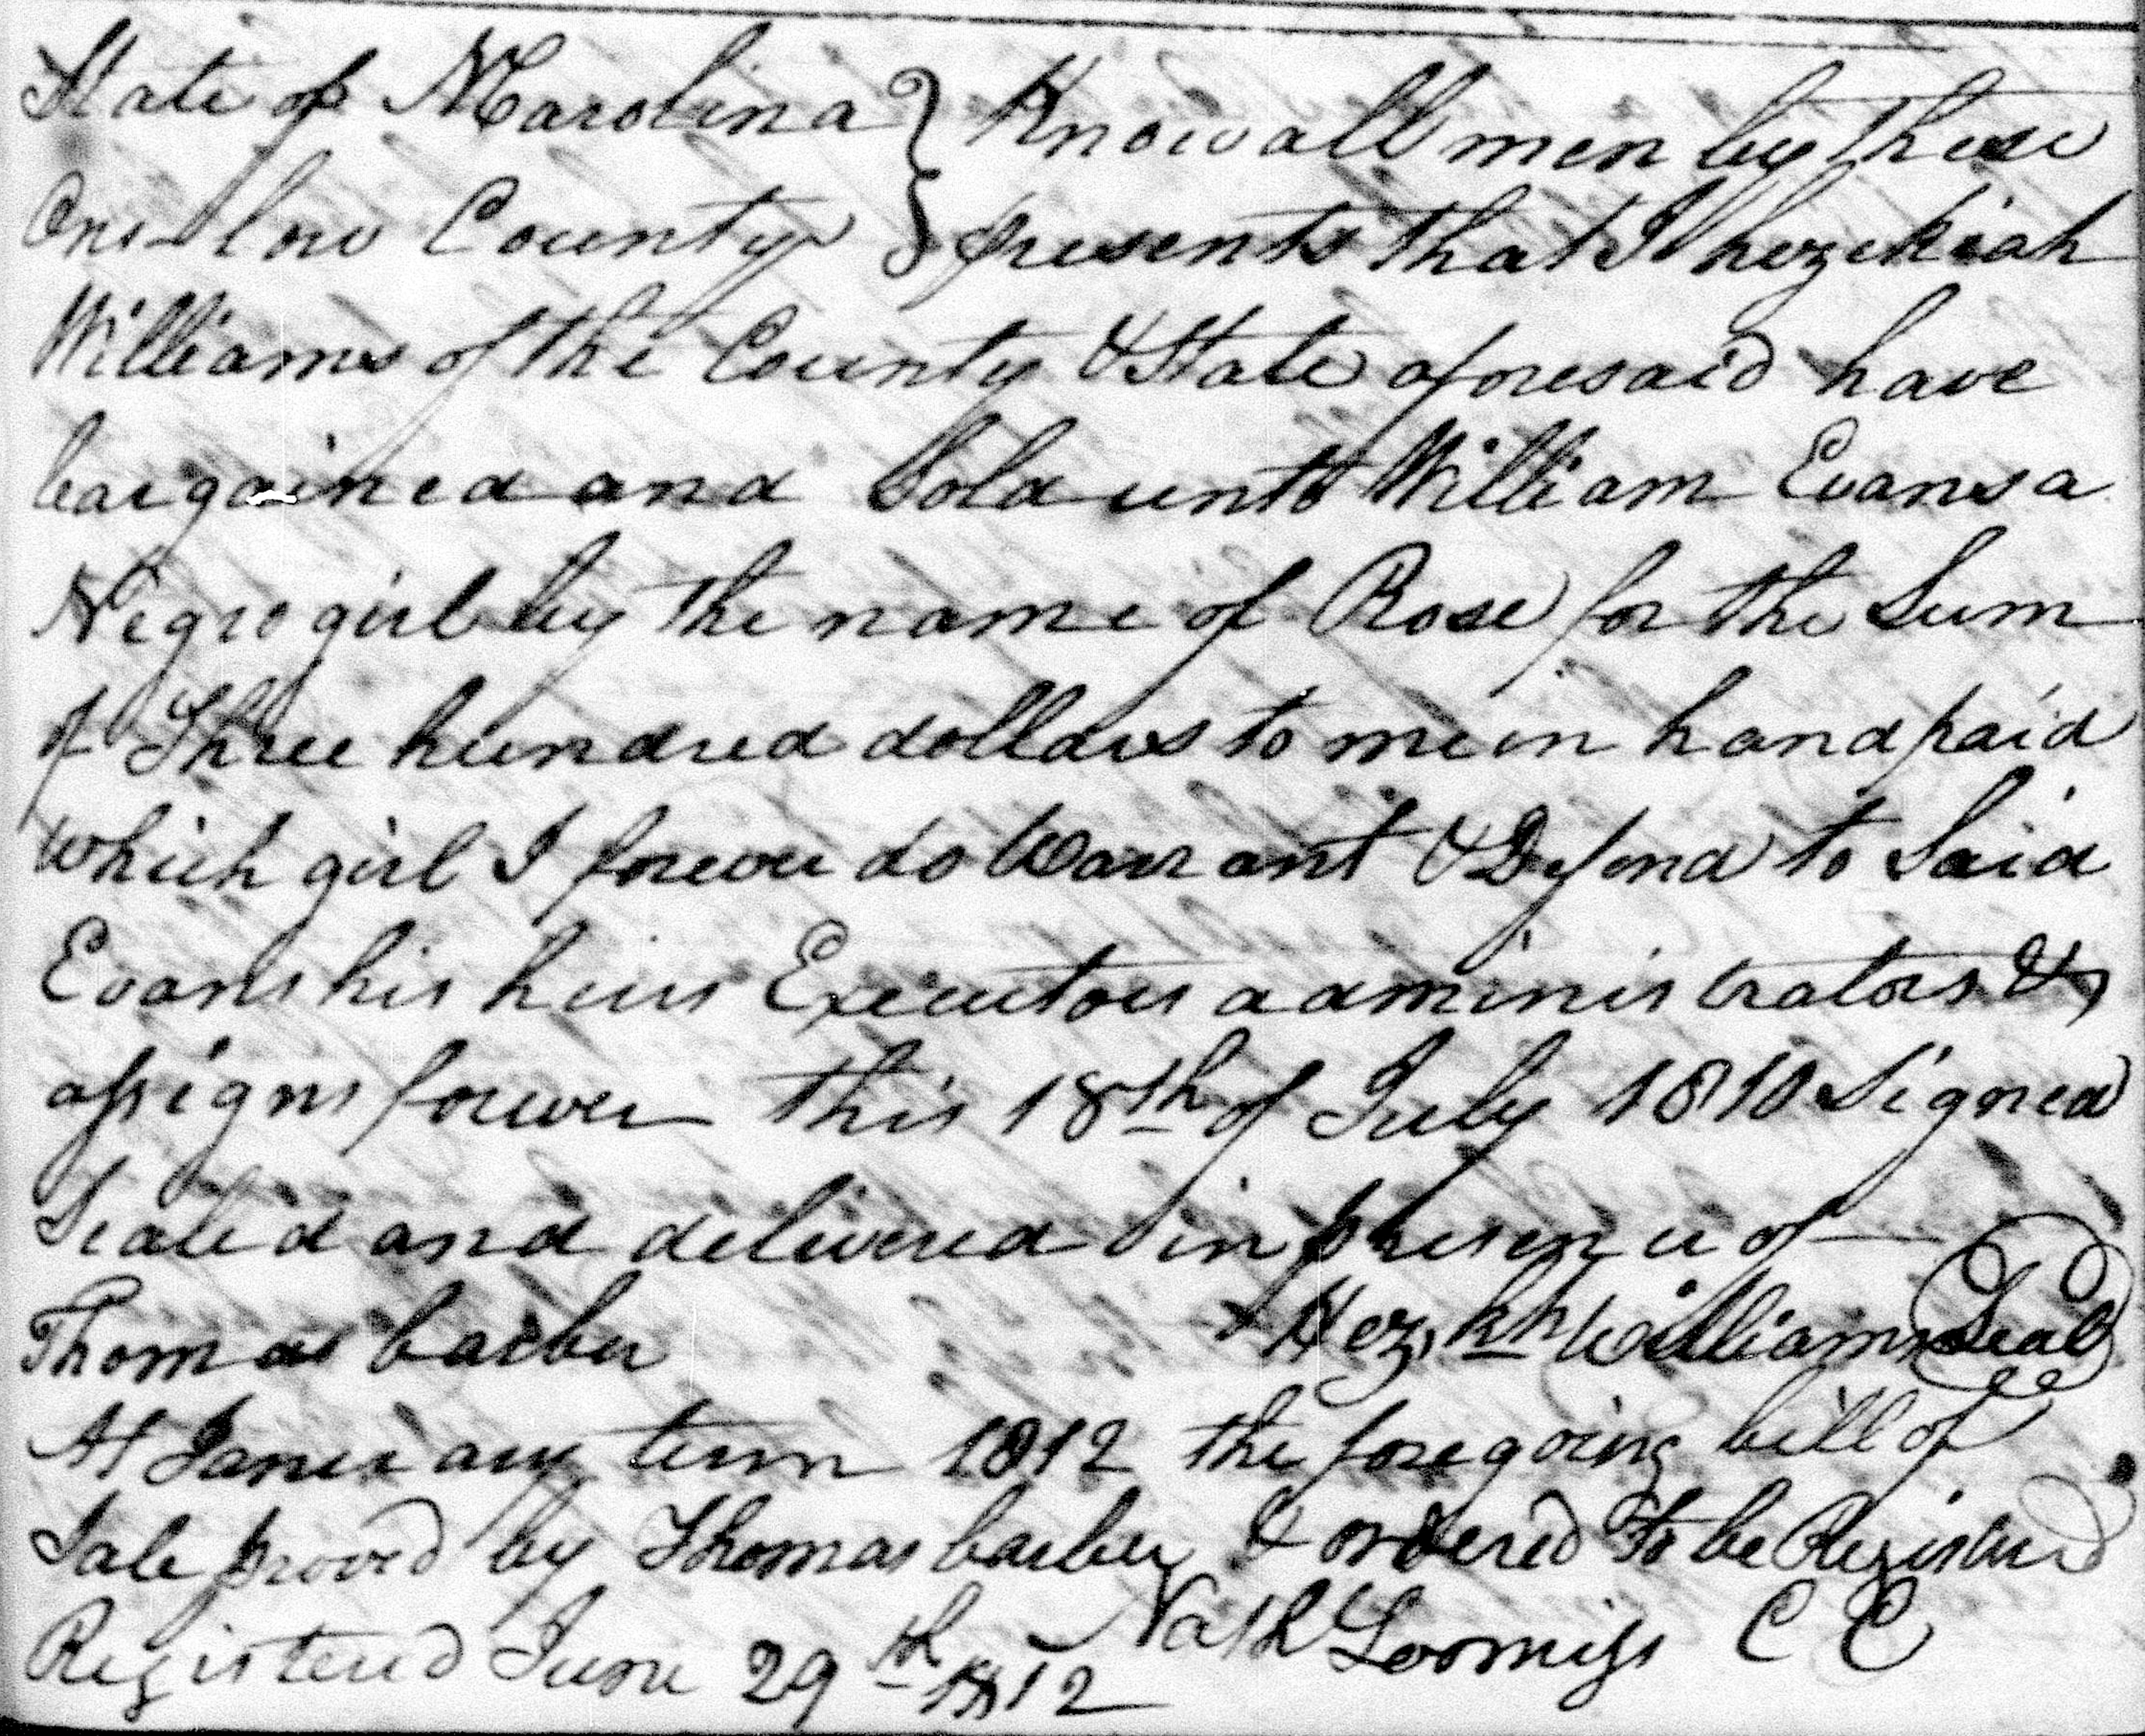 State of NCarolina } Know all men by these
Onslow County } presents that I hezekiah
Williams of the County & State aforesaid have
bargained and Sold unto William Evans a
Negro girl by the name of Rose for the Sum
of Three hundred dollars to me in hand paid
which girl I forever do Warrant & Defend to Said
Evans his heirs Executors administrators &
assigns forever this 18th of July 1810 Signed
Sealed and delivered in presence of
Thomas barber Hez.kh Williams Seal
At January term 1812 the foregoing bill of
Sale proved by Thomas barber & ordered To be Registered
Nath Loomiss C C
Registered June 29th 1812